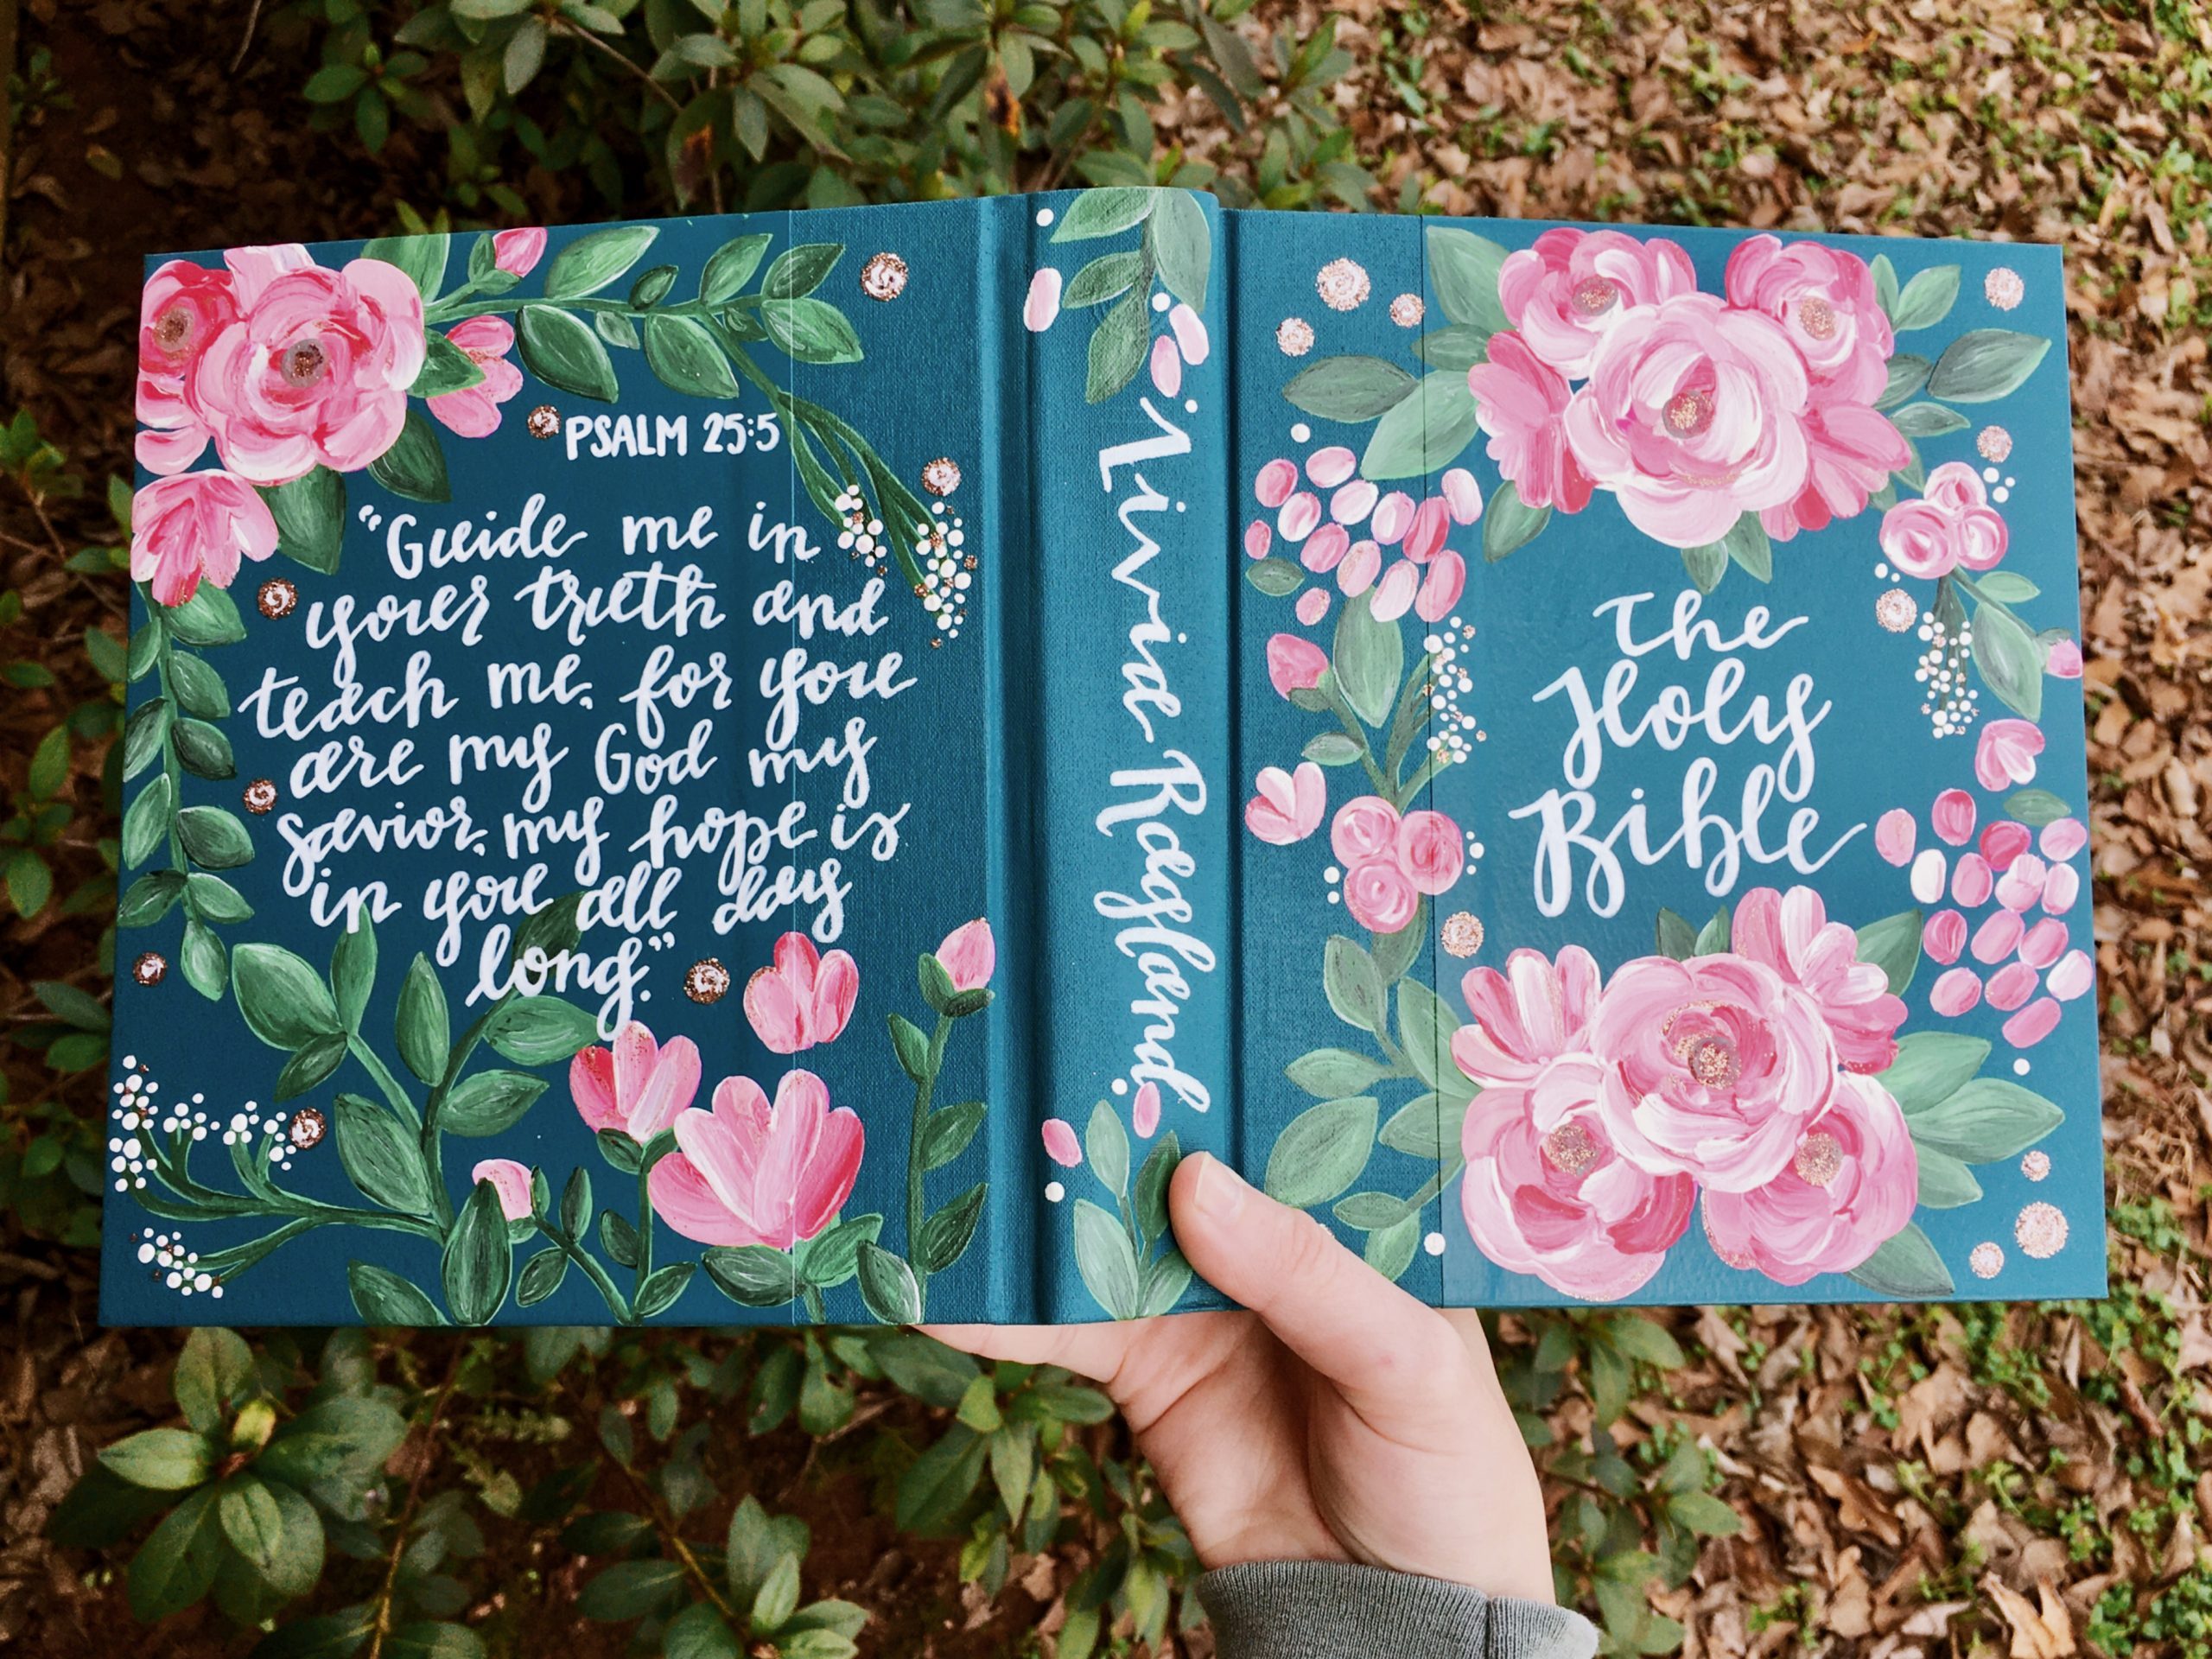 PSALM 25:5
"Guide me in
your truth and
teach me, for you
are my God my
savior, my hope is
in you all day
long."
Livia Ragland
The
Holy
Bible